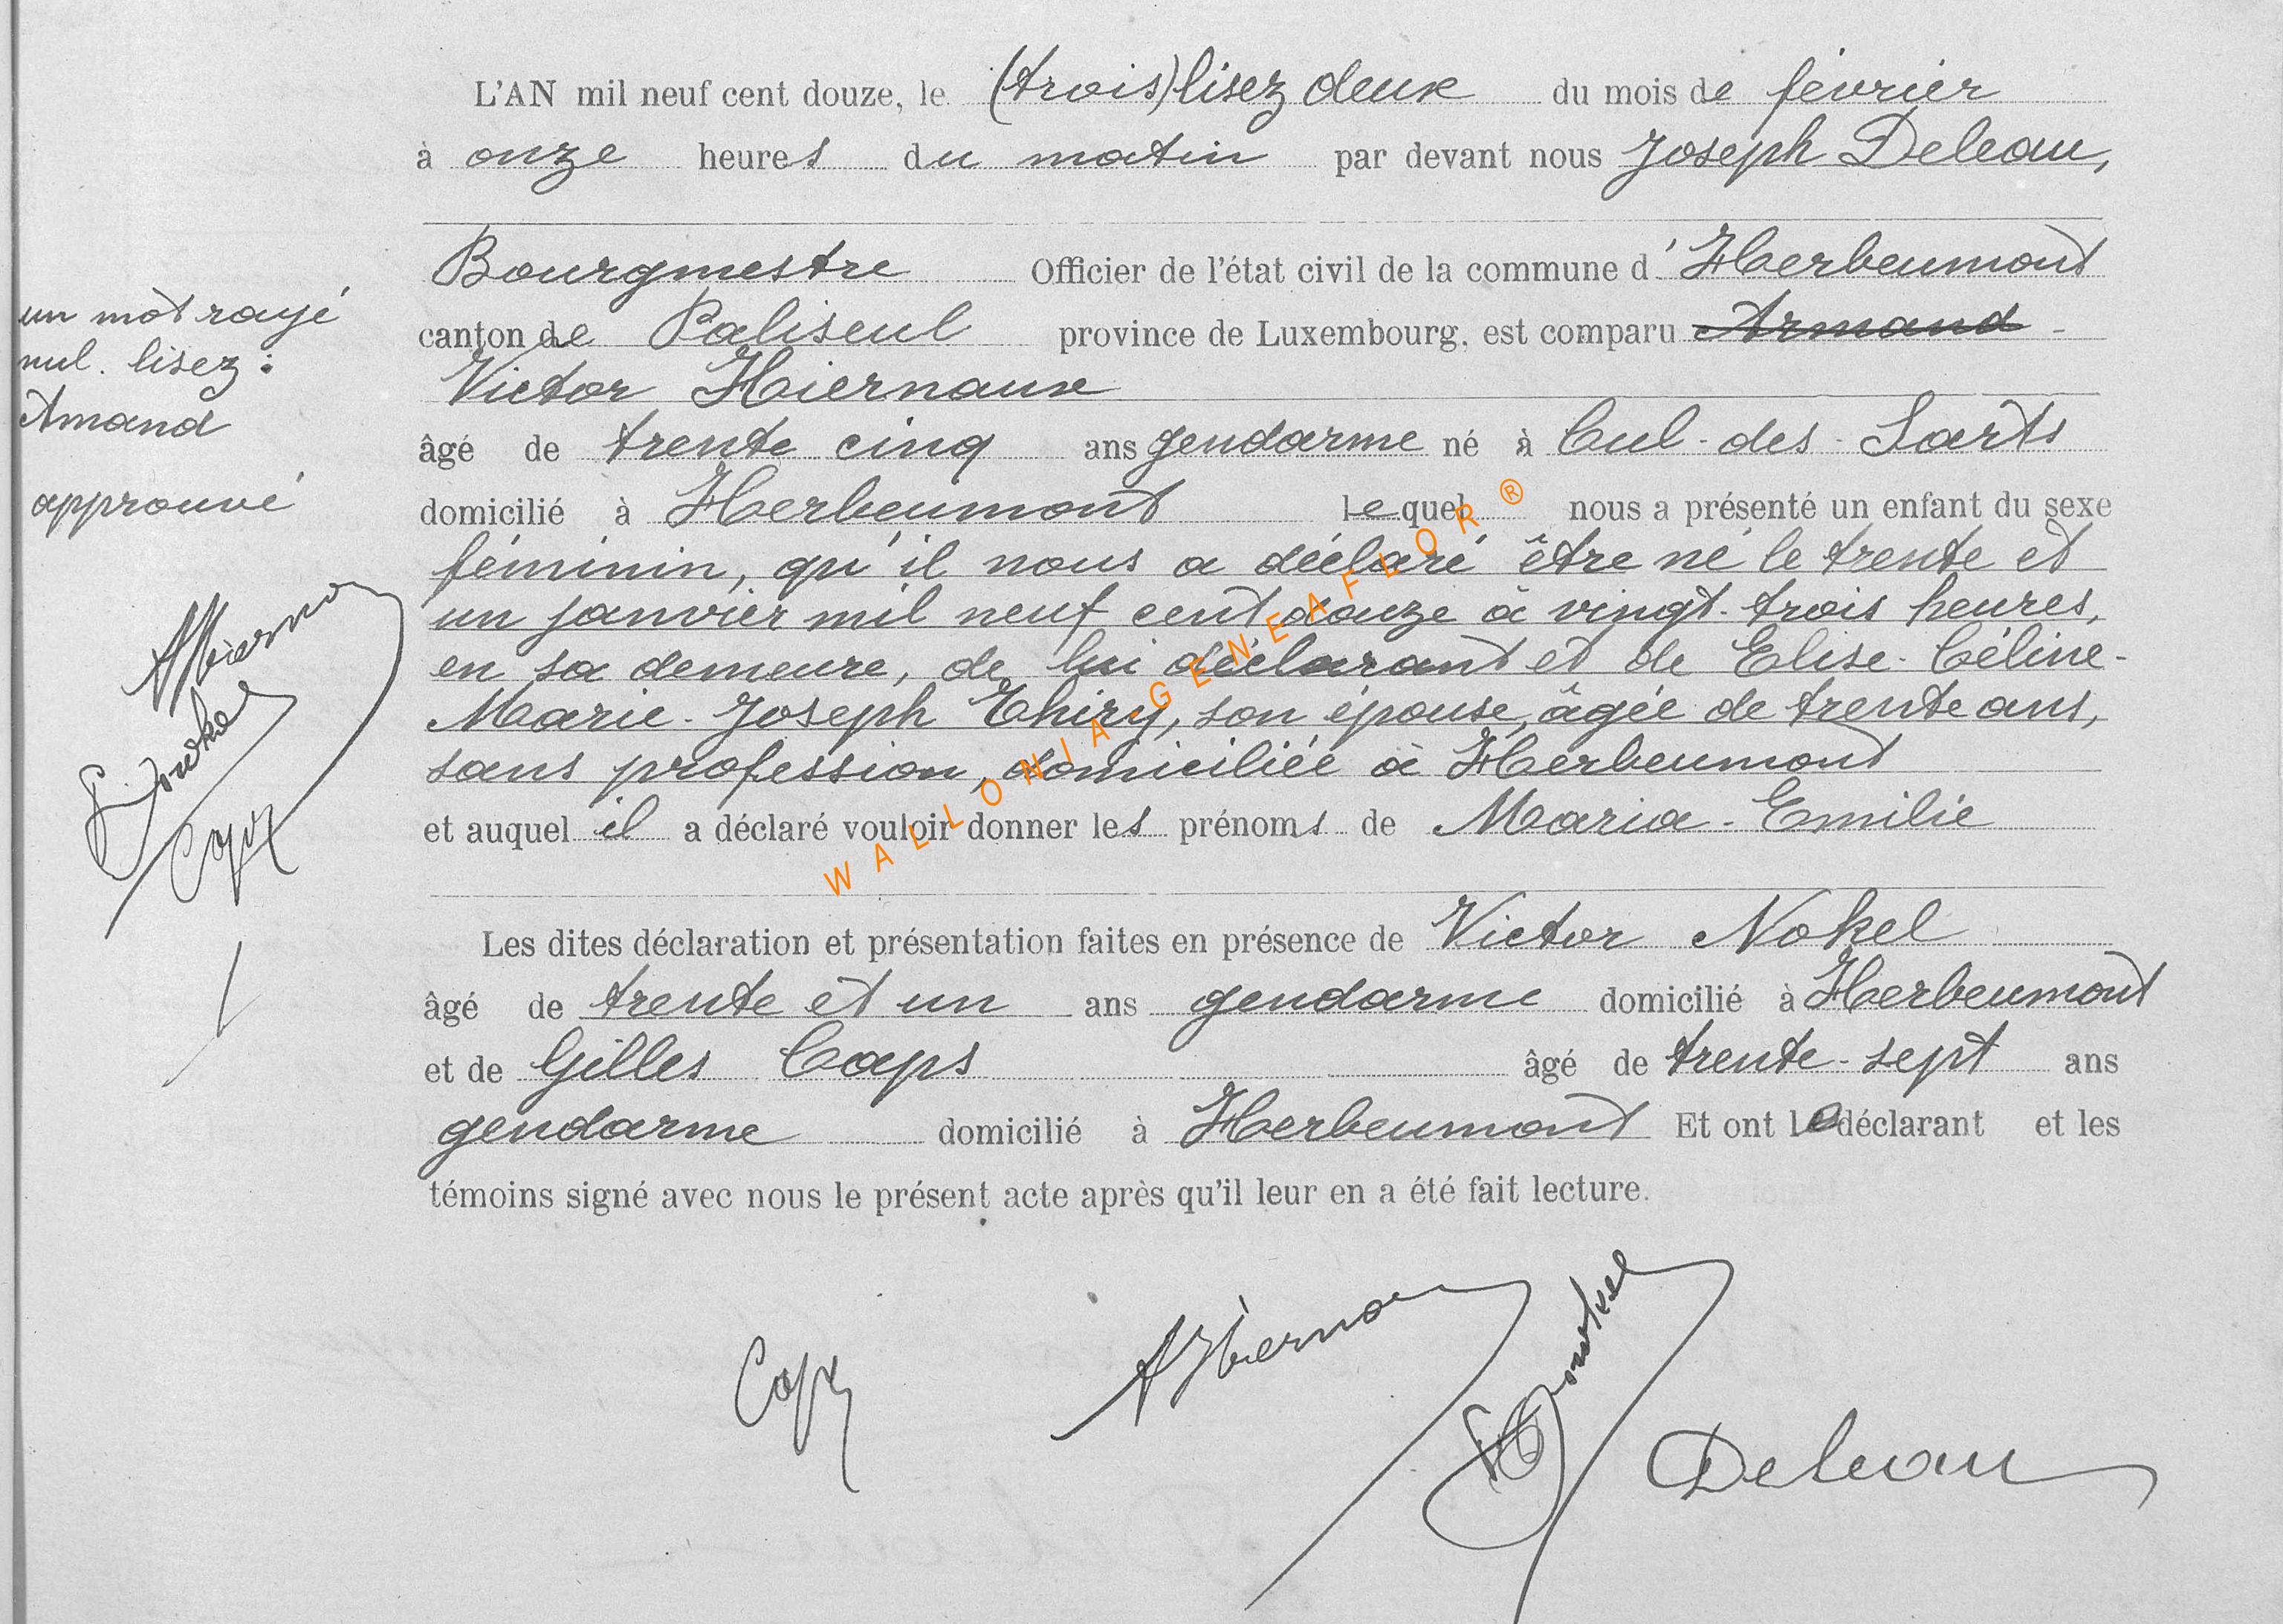 L'AN mil neuf cent douze, le (trois) lisez deux du mois de février
à onze heures du matin par devant nous Joseph Deleau,
Bourgmestre Officier de l'état civil de la commune d'Herbeumont
canton de Paliseul province de Luxembourg, est comparu Armand -
Victor Hiernaux
âgé de trente cinq ans gendarme né à Cul-des-Sarts
domicilié à Herbeumont lequel nous a présenté un enfant du sexe
féminin, qu'il nous a déclaré être né le trente et
un janvier mil neuf cent douze à vingt-trois heures,
en sa demeure, de lui déclarant et de Elise-Céline-
Marie-Joseph Thiry, son épouse, âgée de trente ans,
sans profession, domiciliée à Herbeumont
et auquel il a déclaré vouloir donner les prénoms de Maria-Emilie
Les dites déclaration et présentation faites en présence de Victor Nokel
âgé de trente et un ans gendarme domicilié à Herbeumont
et de Gilles Caps âgé de trente-sept ans
gendarme domicilié à Herbeumont Et ont le déclarant et les
témoins signé avec nous le présent acte après qu'il leur en a été fait lecture.
un mot rayé
nul. lisez :
Amand
approuvé
AHiernaux
Caps
Caps
AHiernaux
Deleau
WALLONIA-GENEAFLOR®